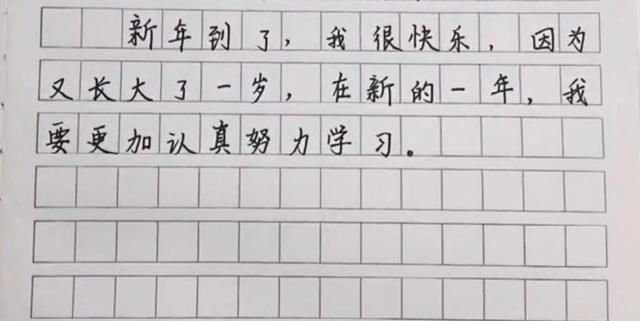 新年到了，我很快乐，因为
又长大了一岁，在新的一年，我
要更加认真努力学习。